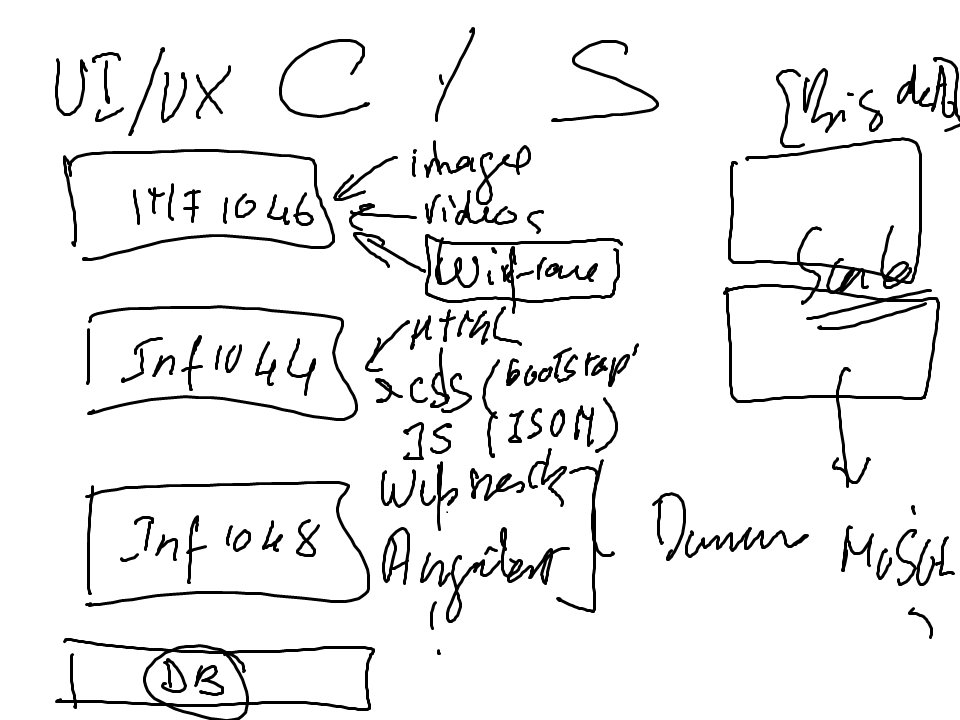 UI/UX C / S
[Big data]
INF 1046
images
videos
Wireframe
Inf 1044
HTML
CSS (bootstrap
JS (JSON)
Scale
Inf 1048
Websocket
Angular
NoSQL
DB